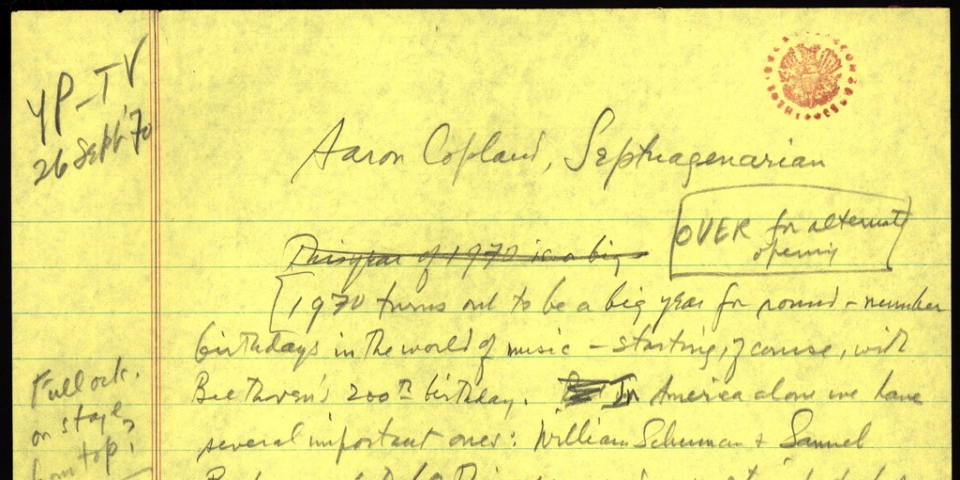 YP-TV
26 Sept '70
Aaron Copland, Septuagenarian
OVER for alternate
opening
This year of 1970 is a big
1970 turns out to be a big year for round-number
birthdays in the world of music – starting, of course, with
Beethoven's 200th birthday. In America alone we have
several important ones: William Schuman + Samuel
Full orch.
on stage
from top!